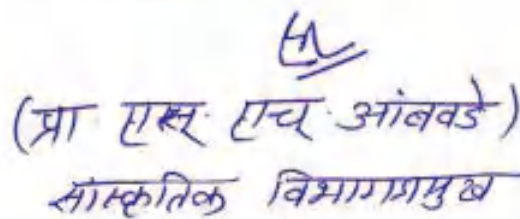 (प्रा एस. एच. आंबवडे)
सांस्कृतिक विभागप्रमुख